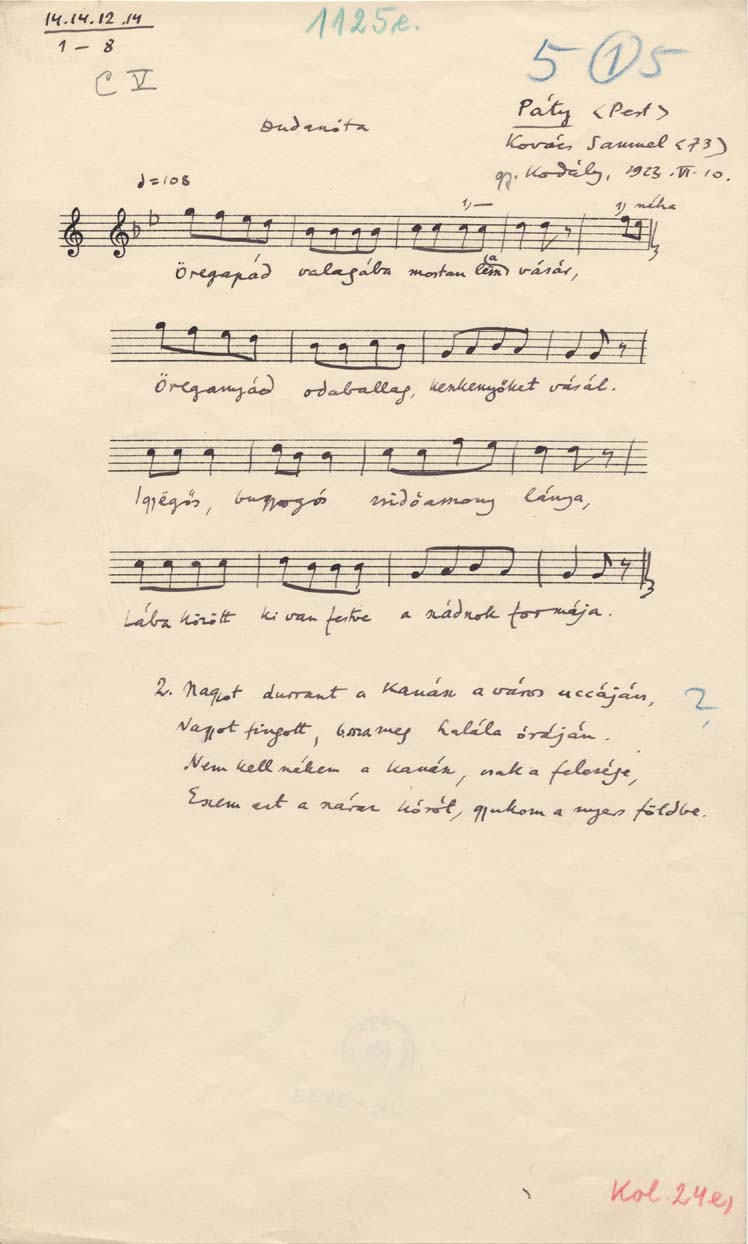 14.14.12.14
1 - 8
1125e.
C V
5 1 5
Páty <Pest>
Dudanóta
Kovács Samuel <73>
gy. Kodály, 1923. VI. 10.
♩=108
1) —
1) néha
Öregapád valagába mostan (a vásár,
Öreganyád odaballag, kenkenyőket vásál.
Igyëgős, bugyogós zsidóasszony lánya,
Lába között ki van festve a nádnok formája.
2. Nagyot durrant a kanász a város uccáján,
?
Nagyot fingott, bassza meg halála óráján.
Nem kell nékem a kanász, csak a felesége,
Eszem azt a száraz kóról, gyukom a nyers földbe.
Kol. 24e)